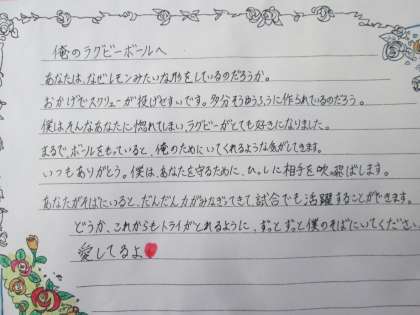 俺のラグビーボールへ
あなたは、なぜレモンみたいな形をしているのだろうか。
おかげでスクリューが投げやすいです。多分そうゆうふうに作られているのだろう。
僕はそんなあなたに惚れてしまい、ラグビーがとても好きになりました。
まるで、ボールをもっていると、俺のためにいてくれるような気がしてきます。
いつもありがとう。僕は、あなたを守るために、ひっしに相手を吹っ飛ばします。
あなたがそばにいると、だんだん力がみなぎってきて試合でも活躍することができます。
どうか、これからもトライがとれるように、ずっとずっと僕のそばにいてください。
愛してるよ